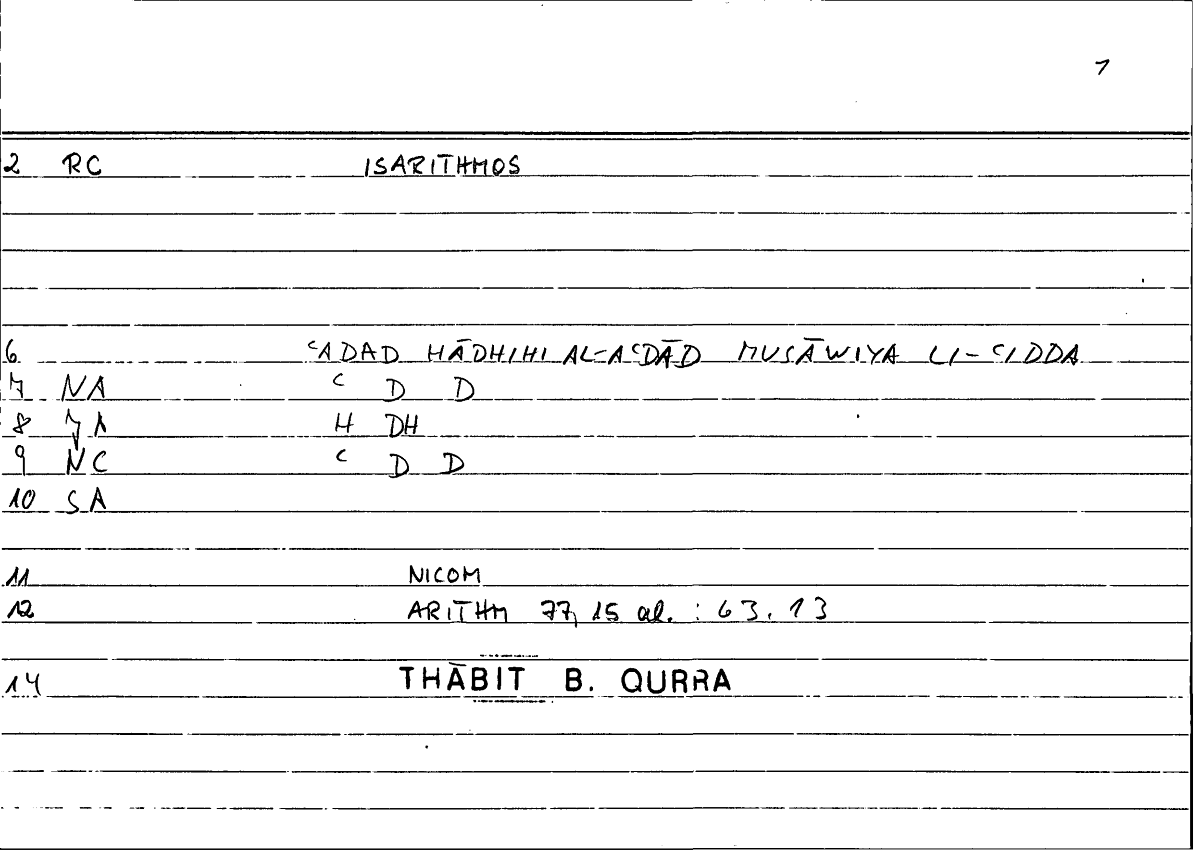 1
2 RC ISARITHMOS
6 ʿADAD HĀDHIHI AL-AʿDĀD MUSĀWIYA LI-ʿIDDA
7 NA ʿ D D
8 JA H DH
9 NC ʿ D D
10 SA
11 NICOM
12 ARITHM 77,15 al. : 63.13
14 THĀBIT B. QURRA